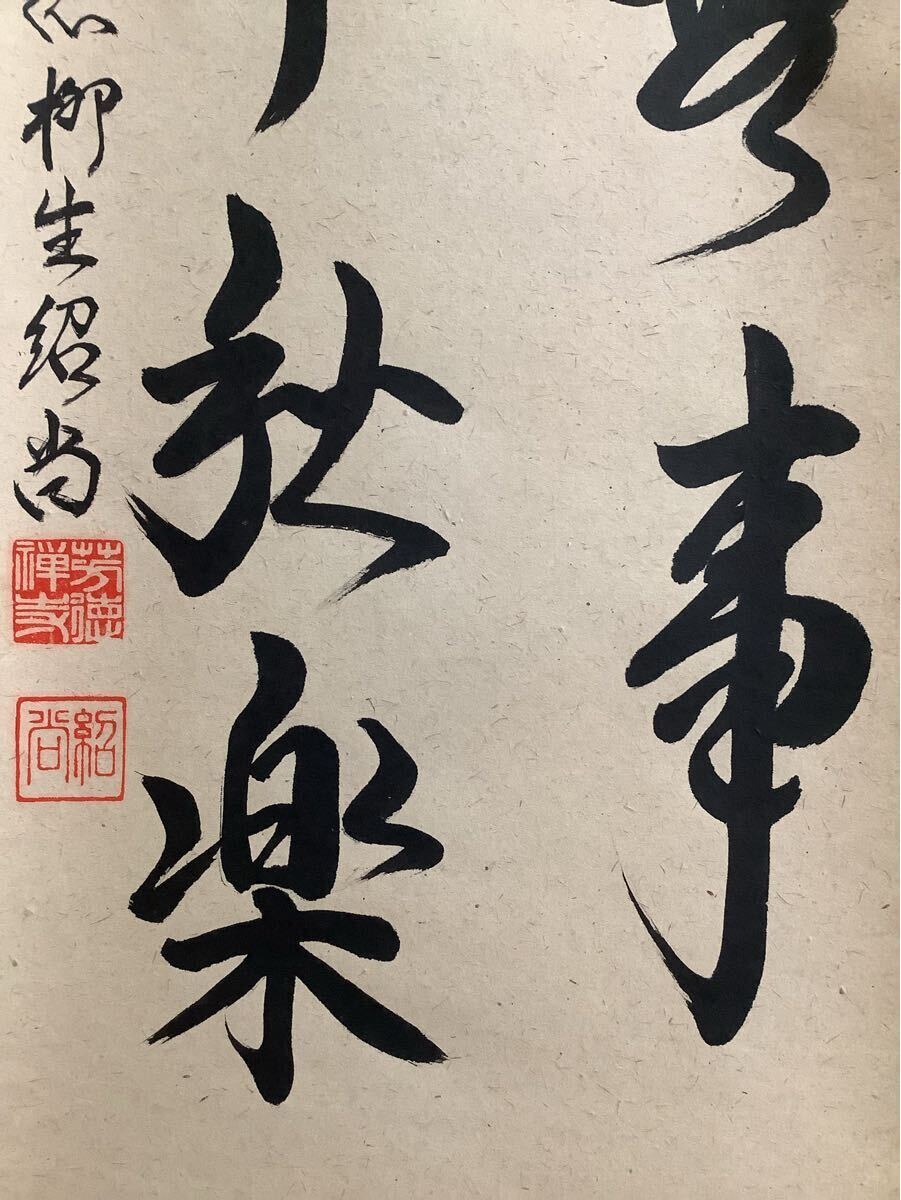 事
秋楽
柳生紹尚
芳徳
禅寺
紹尚